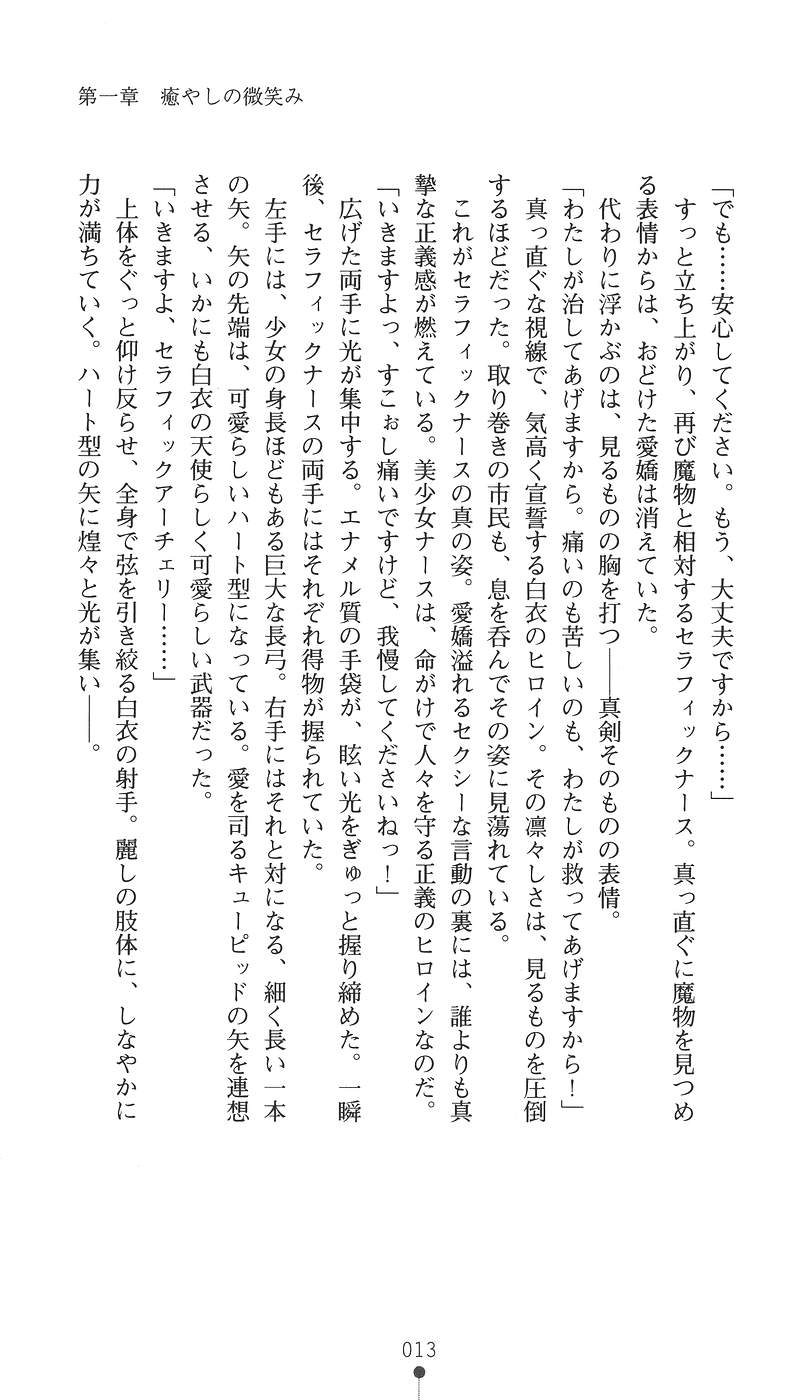 第一章　癒やしの微笑み
「でも……安心してください。もう、大丈夫ですから……」
　すっと立ち上がり、再び魔物と相対するセラフィックナース。真っ直ぐに魔物を見つめ
る表情からは、おどけた愛嬌は消えていた。
　代わりに浮かぶのは、見るものの胸を打つ――真剣そのものの表情。
「わたしが治してあげますから。痛いのも苦しいのも、わたしが救ってあげますから！」
　真っ直ぐな視線で、気高く宣誓する白衣のヒロイン。その凛々しさは、見るものを圧倒
するほどだった。取り巻きの市民も、息を呑んでその姿に見蕩れている。
　これがセラフィックナースの真の姿。愛嬌溢れるセクシーな言動の裏には、誰よりも真
摯な正義感が燃えている。美少女ナースは、命がけで人々を守る正義のヒロインなのだ。
「いきますよっ、すこぉし痛いですけど、我慢してくださいねっ！」
　広げた両手に光が集中する。エナメル質の手袋が、眩い光をぎゅっと握り締めた。一瞬
後、セラフィックナースの両手にはそれぞれ得物が握られていた。
　左手には、少女の身長ほどもある巨大な長弓。右手にはそれと対になる、細く長い一本
の矢。矢の先端は、可愛らしいハート型になっている。愛を司るキューピッドの矢を連想
させる、いかにも白衣の天使らしく可愛らしい武器だった。
「いきますよ、セラフィックアーチェリー……」
　上体をぐっと仰け反らせ、全身で弦を引き絞る白衣の射手。麗しの肢体に、しなやかに
力が満ちていく。ハート型の矢に煌々と光が集い――。
013